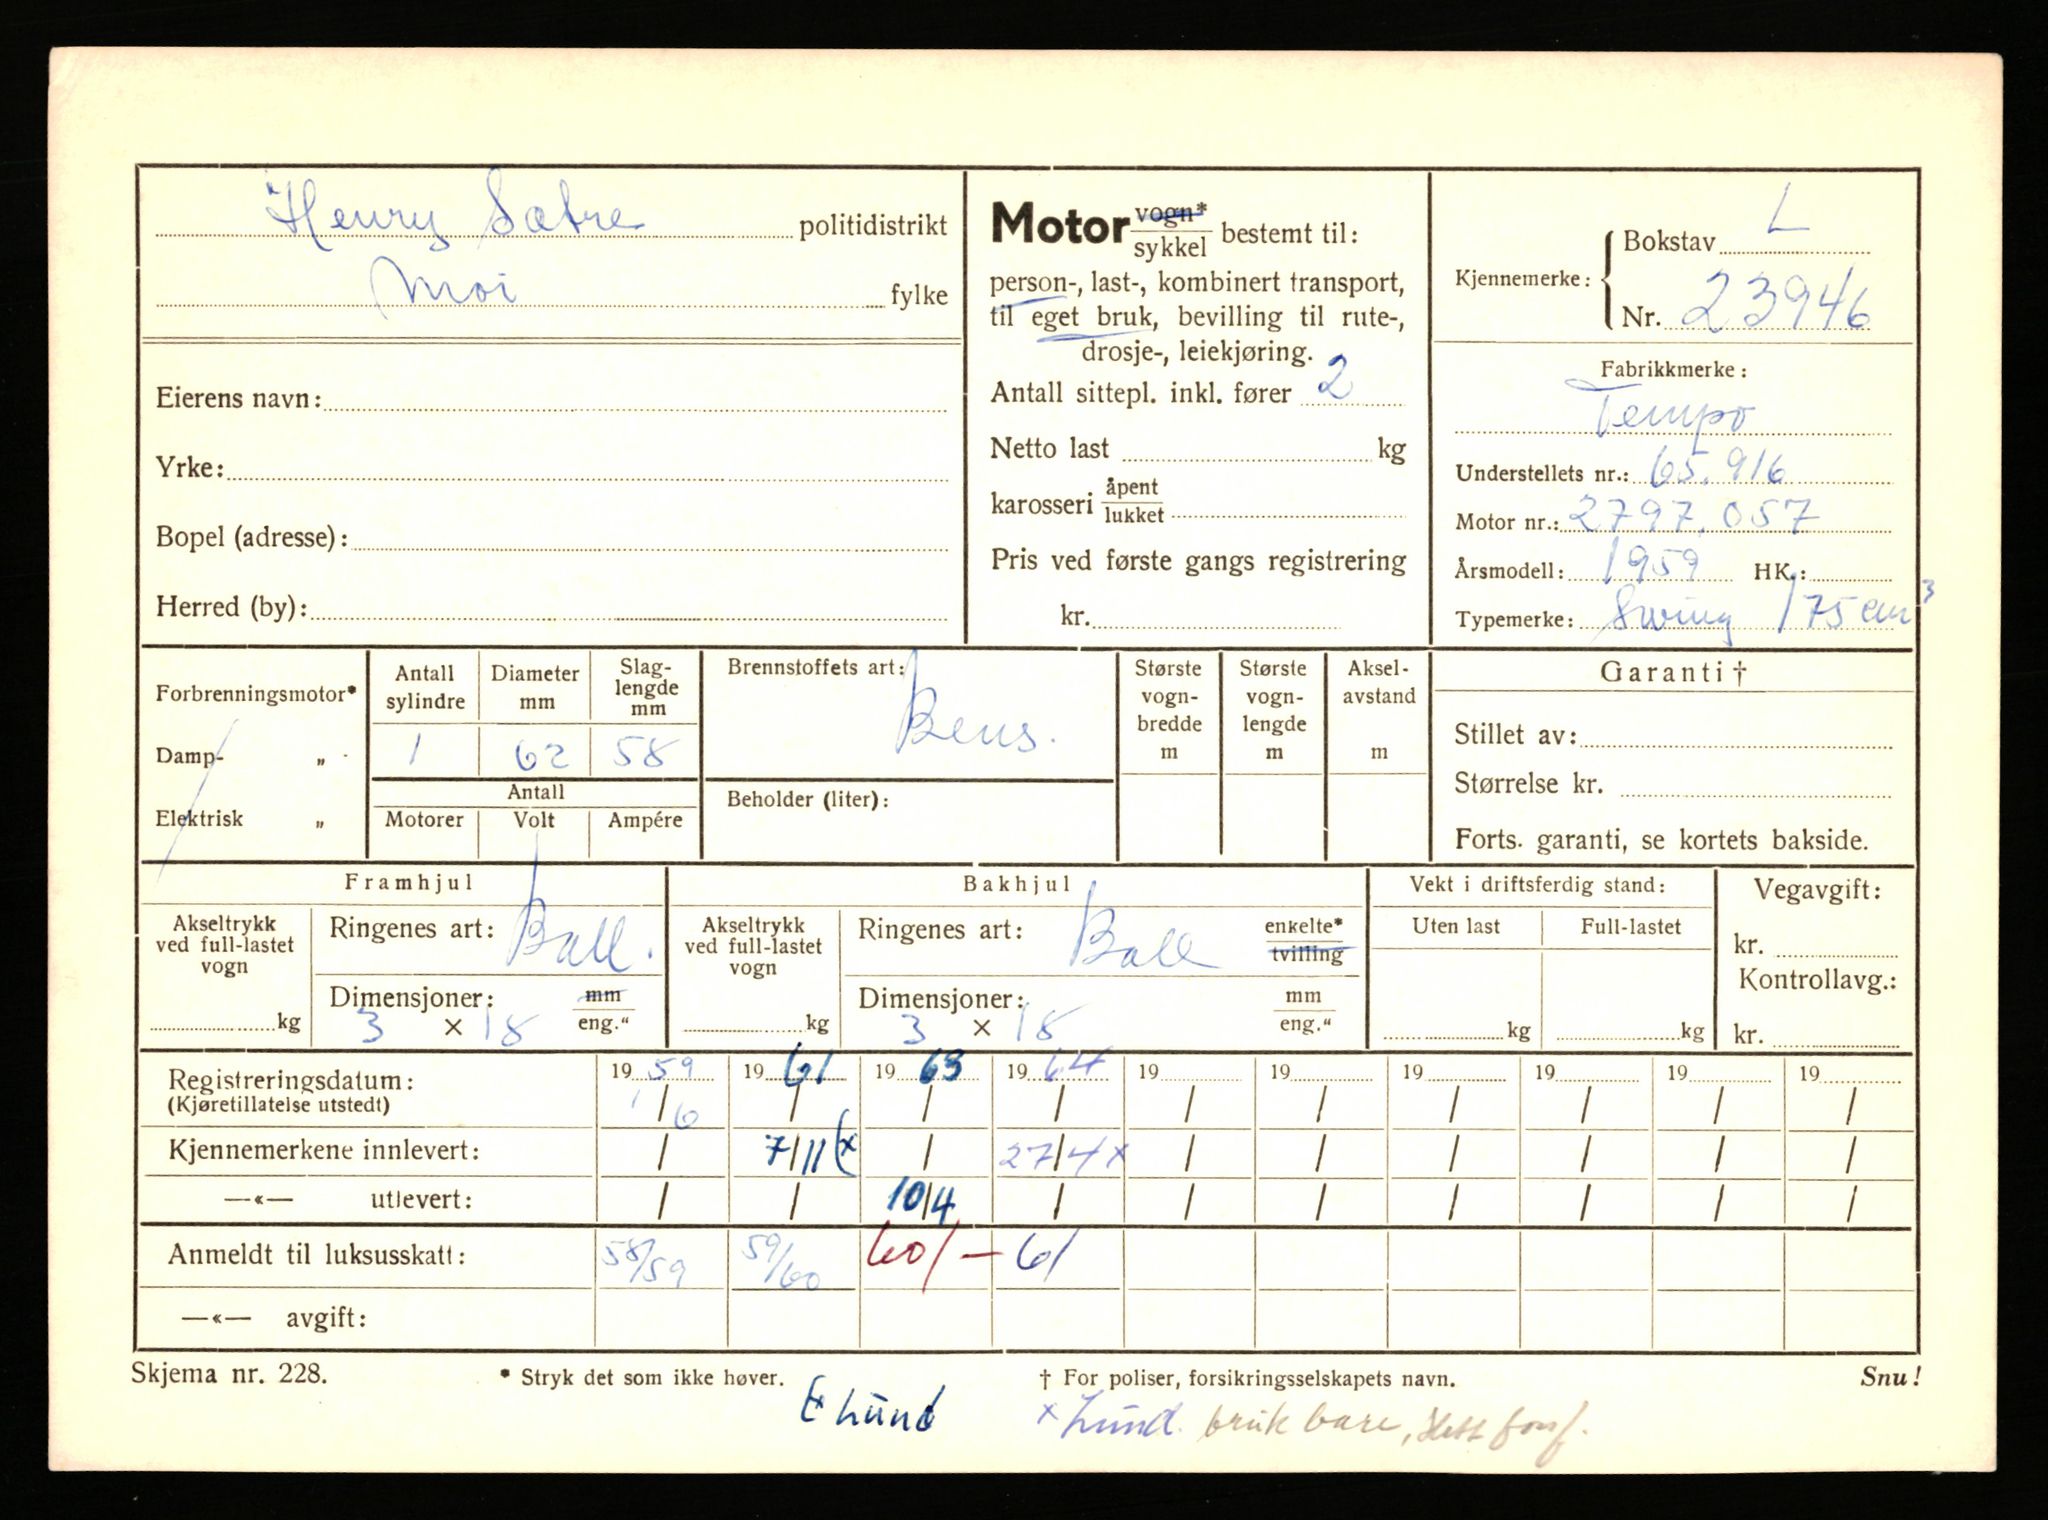 Henry Sætre politidistrikt
Moi fylke
Eierens navn:
Yrke:
Bopel (adresse):
Herred (by):
Motor vogn*
sykkel bestemt til:
person-, last-, kombinert transport,
til eget bruk, bevilling til rute-,
drosje-, leiekjøring.
Antall sittepl. inkl. fører 2
Netto last kg
karosseri åpent
lukket
Pris ved første gangs registrering
kr.
Kjennemerke: Bokstav L
Nr. 23946
Fabrikkmerke:
Tempo
Understellets nr.: 65.916
Motor nr.: 2797.057
Årsmodell: 1959 HK.:
Typemerke: Swing 175 cm³
Forbrenningsmotor*
Damp- „
Elektrisk „
Antall sylindre Diameter mm Slag-lengde mm
1 62 58
Antall
Motorer Volt Ampére
Brennstoffets art:
Bens.
Beholder (liter):
Største vogn-bredde m
Største vogn-lengde m
Aksel-avstand m
Garanti †
Stillet av:
Størrelse kr.
Forts. garanti, se kortets bakside.
Framhjul
Akseltrykk
ved full-lastet
vogn
kg
Ringenes art: Ball.
Dimensjoner: mm
3 × 18 eng."
Bakhjul
Akseltrykk
ved full-lastet
vogn
kg
Ringenes art: Ball enkelte*
tvilling
Dimensjoner: mm
3 × 18 eng."
Vekt i driftsferdig stand:
Uten last Full-lastet
kg kg
Vegavgift:
kr.
Kontrollavg.:
kr.
Registreringsdatum: 19 59 19 61 19 63 19 64 19 19 19 19 19 19
(Kjøretillatelse utstedt) 1/6 / / / / / / / / /
Kjennemerkene innlevert: / 7/11 (x / 27/4 x / / / / / /
—«— utlevert: / / 10/4 / / / / / / /
Anmeldt til luksusskatt: 58/59 59/60 60/ — 61
—«— avgift:
Skjema nr. 228. * Stryk det som ikke høver. † For poliser, forsikringsselskapets navn. Snu!
Lund x Lund. bruk bare,